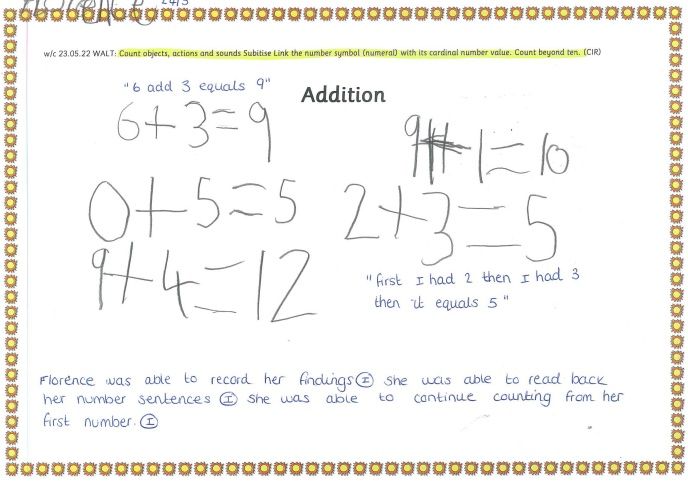 w/c 23.05.22 WALT: Count objects, actions and sounds Subitise Link the number symbol (numeral) with its cardinal number value. Count beyond ten. (CIR)
Addition
"6 add 3 equals 9"
6+3=9
9+1=10
0+5=5
2+3=5
9+4=12
"first I had 2 then I had 3
then it equals 5"
Florence was able to record her findings Ⓘ she was able to read back
her number sentences Ⓘ she was able to continue counting from her
first number. Ⓘ